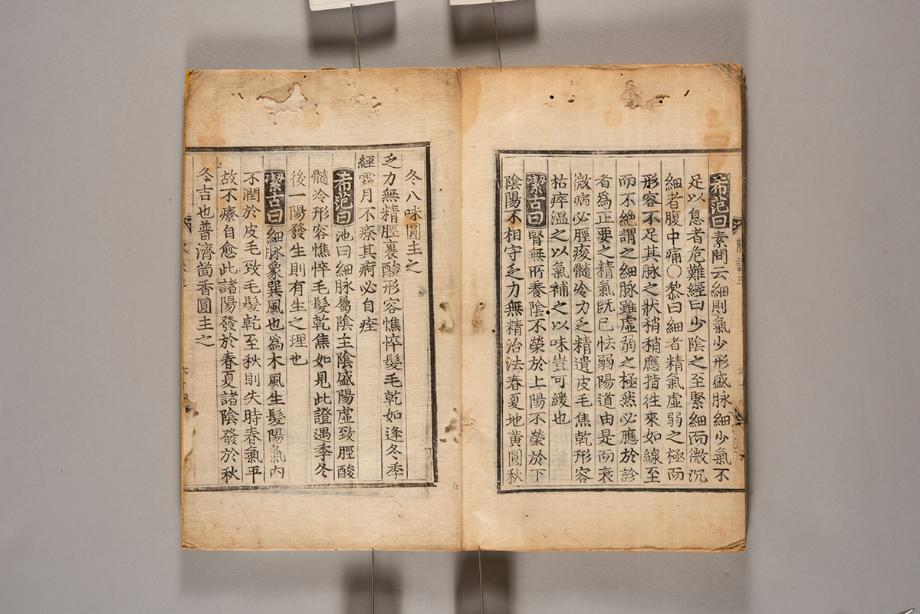 希范曰素問云細則氣少形盛脉細少氣不
足以息者危難經曰少陰之至緊細而微沉
細者腹中痛○黎曰細者精氣虛弱之極而
形容不足其脉之狀稍稍應指往來如線至
而不絶謂之細脉雖虛弱之極然必應於診
者爲正要之精氣既已怯弱陽道由是而衰
微病必脛痠髓冷力乏精遺皮毛焦乾形容
枯瘁溫之以氣補之以味豈可緩也
潔古曰腎無所養陰不榮於上陽不榮於下
陰陽不相守乏力無精治法春夏地黄圓秋
冬八味圓主之
乏力無精脛裏酸形容憔悴髮毛乾如逢冬季
經霜月不療其痾必自痊
希范曰池曰細脉屬陰主陰盛陽虛致脛酸
髓冷形容憔悴毛髮乾焦如見此證遇季冬
後一陽發生則有生之理也
潔古曰細脉象巽風也爲木風生髮陽氣内
不潤於皮毛致毛髮乾至秋則失時春氣平
故不療自愈此諸陽發於春夏諸陰發於秋
冬吉也普濟茴香圓主之